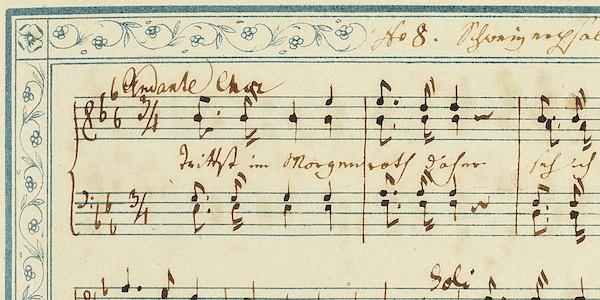 No 8. Schweizerpsal
Andante Chor
3/4
Trittst im Morgenroth daher seh ich
3/4
Soli